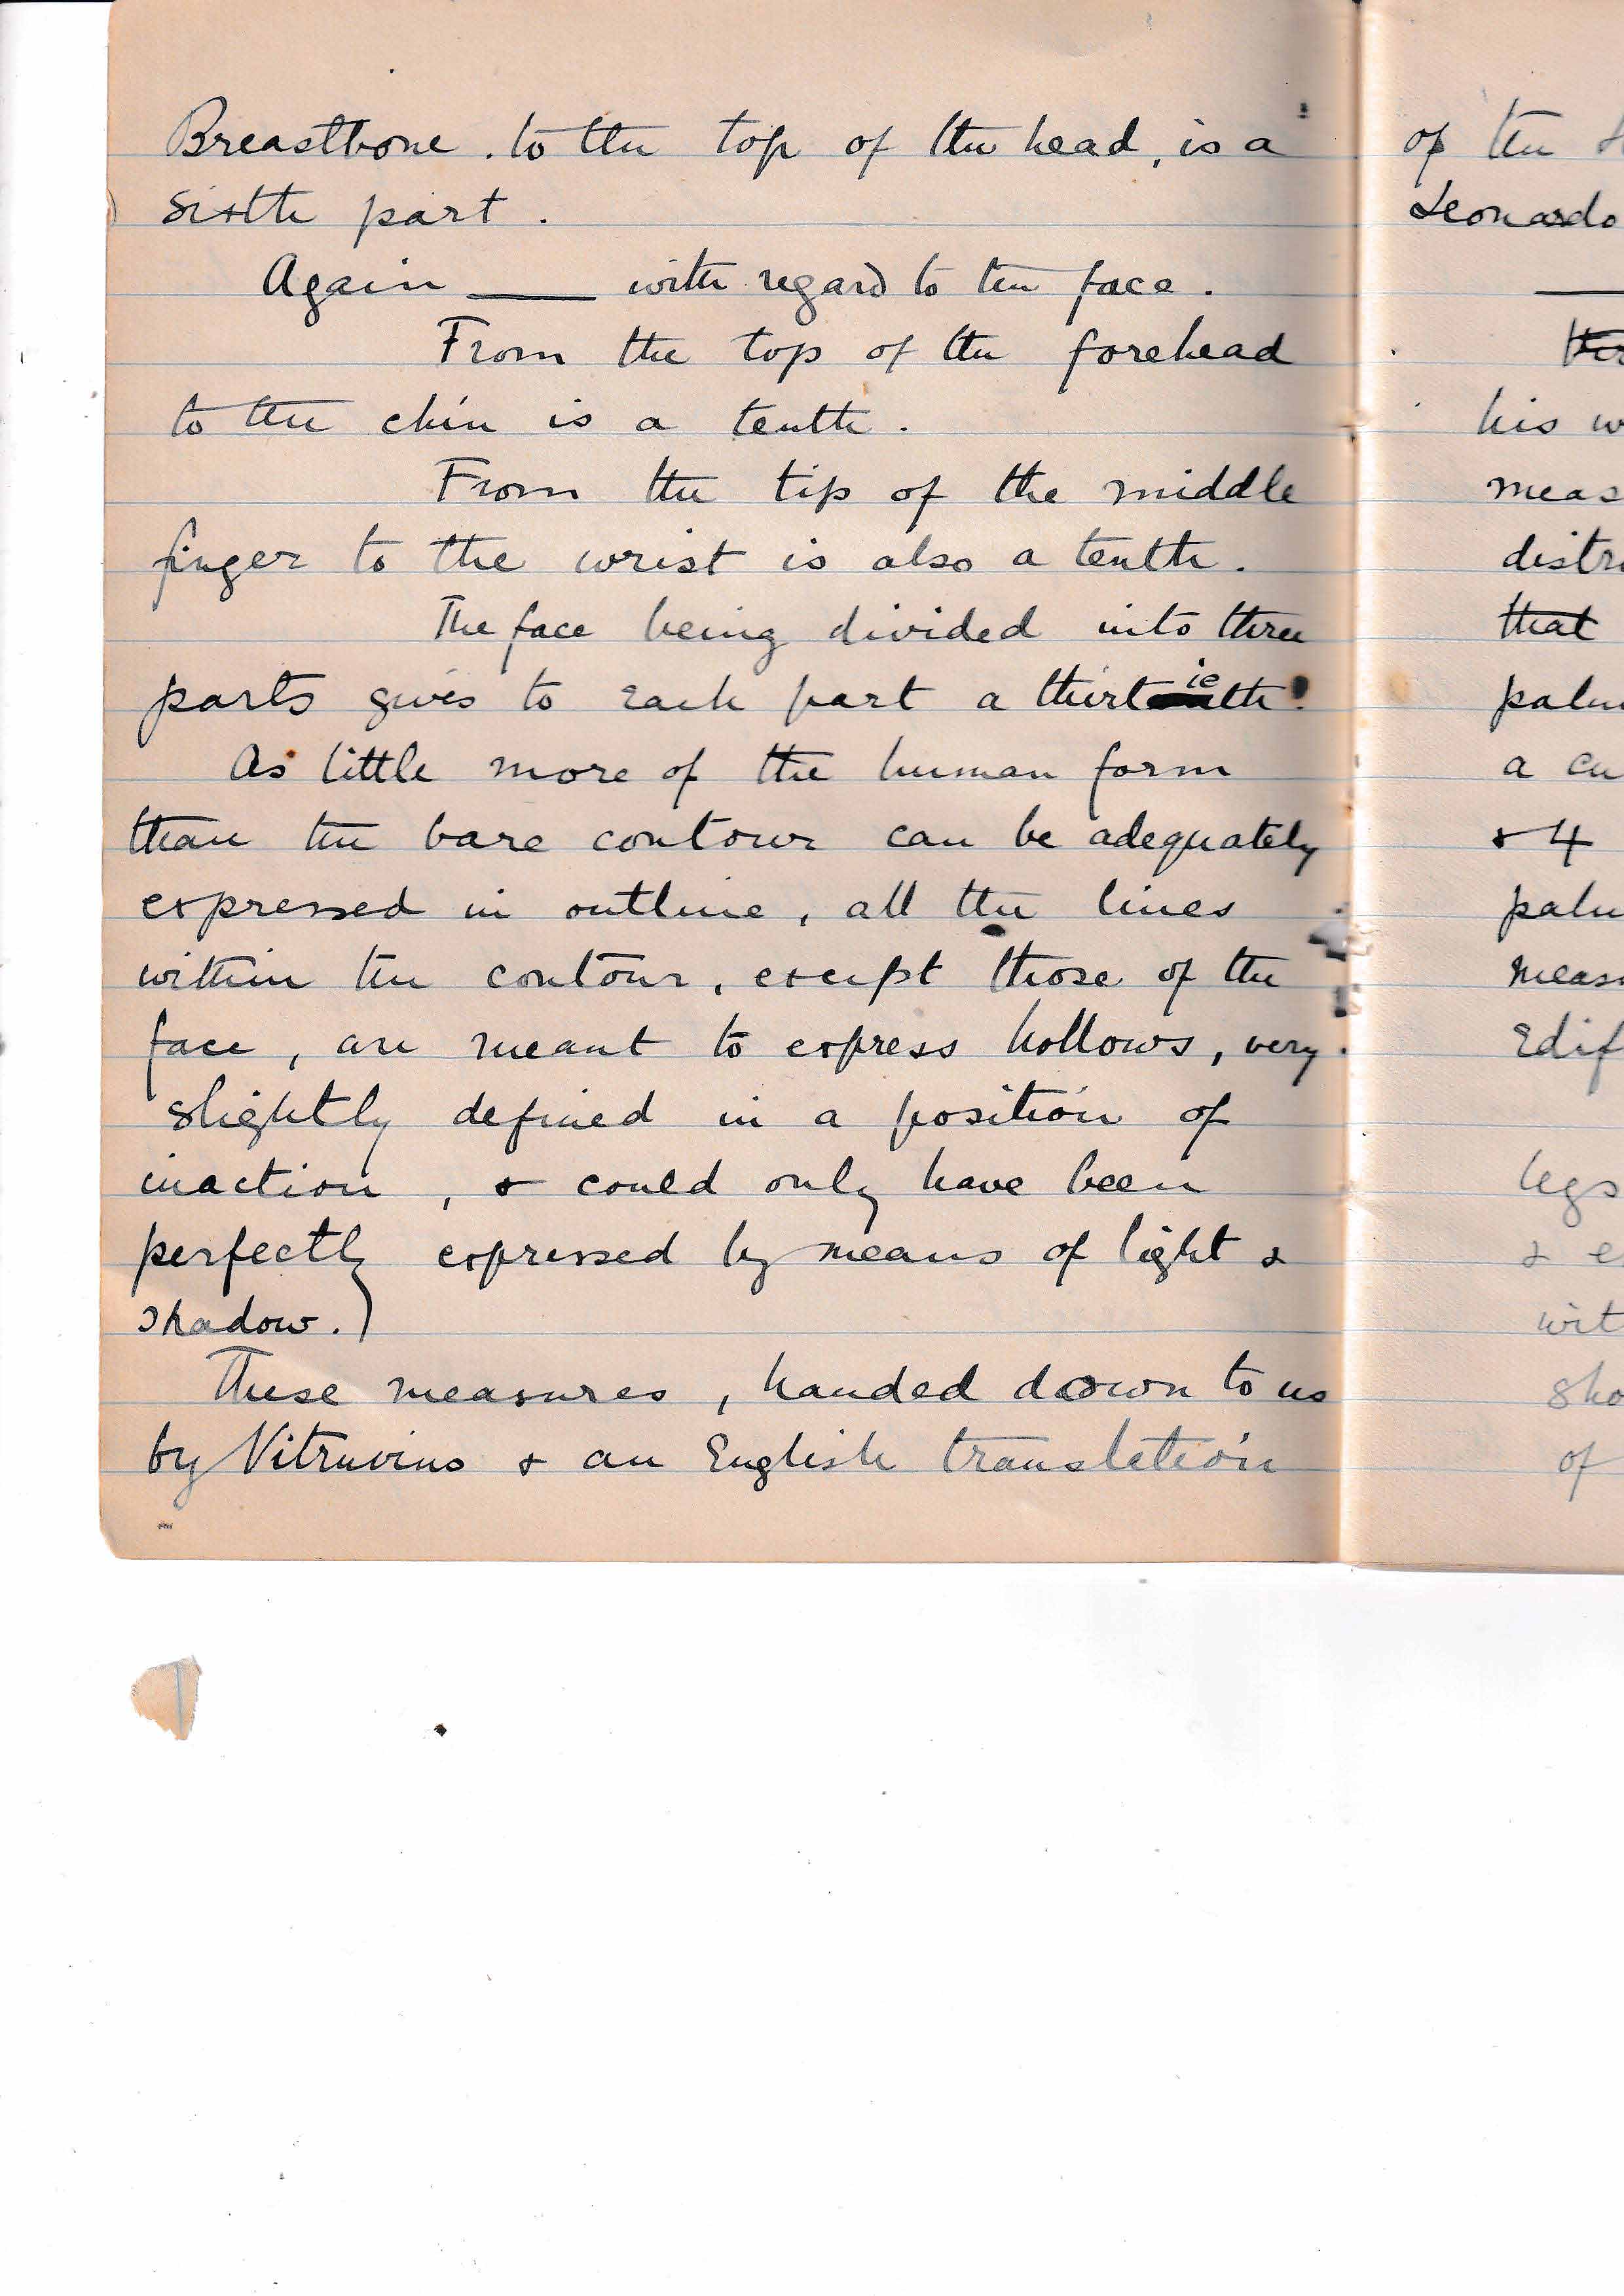 Breastbone . to the top of the head, is a
sixth part .
Again —— with regard to the face .
From the top of the forehead
to the chin is a tenth .
From the tip of the middle
finger to the wrist is also a tenth .
The face being divided into three
parts gives to each part a thirtieth .
As little more of the human form
than the bare contour can be adequately
expressed in outline , all the lines
within the contour , except those of the
face , are meant to express hollows , very
slightly defined in a position of
inaction , & could only have been
perfectly expressed by means of light &
shadow . )
These measures , handed down to us
by Vitruvius & an English translation
of the
Leonardo
his
meas
distri
that
palm
a cu
& 4
palm
measu
Edif
legs
& e
wit
sho
of